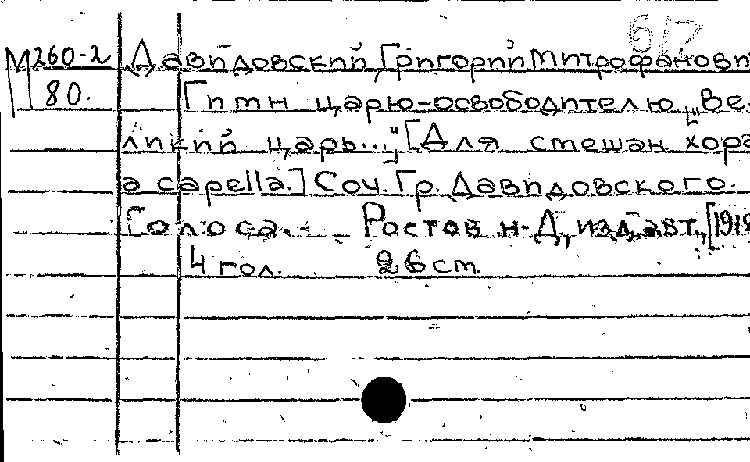 б/7
М260-2 Давидовский, Григорий Митрофанови
80. Гимн царю-освободителю „Ве-
ликий царь..." [Для смешан хора
a capella.] Соч. Гр. Давидовского.
Голоса. - Ростов н-Д, изд. авт., [191
4 гол. 26 см.